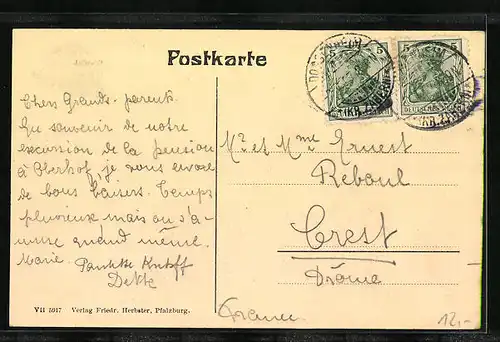 Postkarte
Chers Grands-parents.
En souvenir de notre
excursion de la pension
à Oberhof, je vous envoie
de bons baisers. Temps
pluvieux mais on s'a-
muse quand même.
Marie.
Mr et Mme Ernest
Reboul
Crest
Drôme
France
5 5
5 5
VII 5017 Verlag Friedr. Herbster, Pfalzburg.
12,-